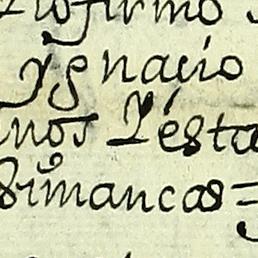 lo firmo
Ygnacio
nos Y ésta
Simancas =